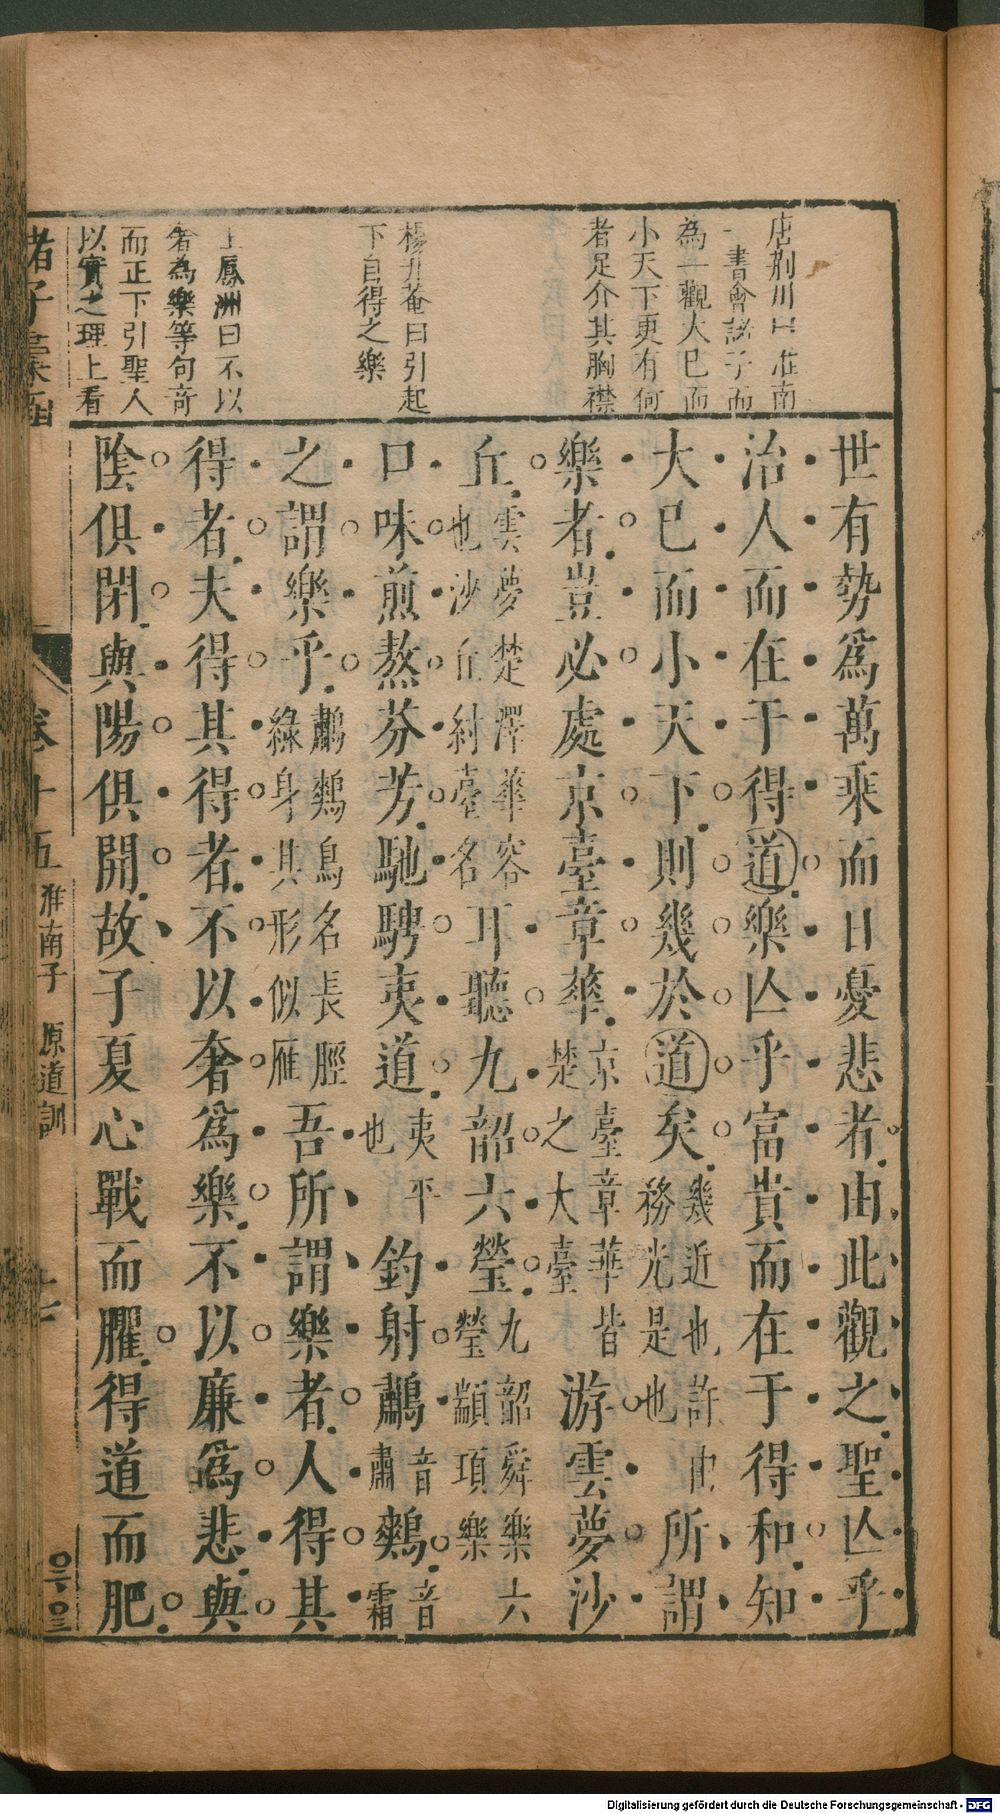 唐荆川曰淮南
一書會諸子而
為一觀大已而
小天下更有何
者足介其胸襟
楊升菴曰引起
下自得之樂
王鳳洲曰不以
奢為樂等句竒
而正下引聖人
以實之理上看
世有勢爲萬乘而日憂悲者由此觀之聖亾乎
治人而在于得道樂亾乎富貴而在于得和知
大巳而小天下則幾於道矣幾近也許由務光是也所謂
樂者豈必處京臺章華京臺章華皆楚之大臺游雲夢沙
丘雲夢楚澤華容也沙丘紂臺名耳聽九韶六瑩九韶舜樂六瑩顓頊樂
口味煎熬芬芳馳騁夷道夷平也釣射鷫音肅鷞音霜
之謂樂乎鷫鷞鳥名長脛綠身其形似雁吾所謂樂者人得其
得者夫得其得者不以奢爲樂不以廉爲悲與
陰俱閉與陽俱開故子夏心戰而臞得道而肥
諸子彙函
卷十五 淮南子 原道訓
Digitalisierung gefördert durch die Deutsche Forschungsgemeinschaft - DFG